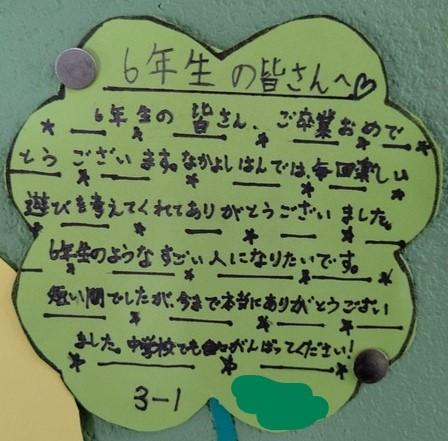 6年生の皆さんへ♡
6年生の皆さん、ご卒業おめで
とうございます。なかよしはんでは、毎回楽しい
遊びを考えてくれてありがとうございました。
6年生のようなすごい人になりたいです。
短い間でしたが、今まで本当にありがとうござい
ました。中学校でもがんばってください!
3-1